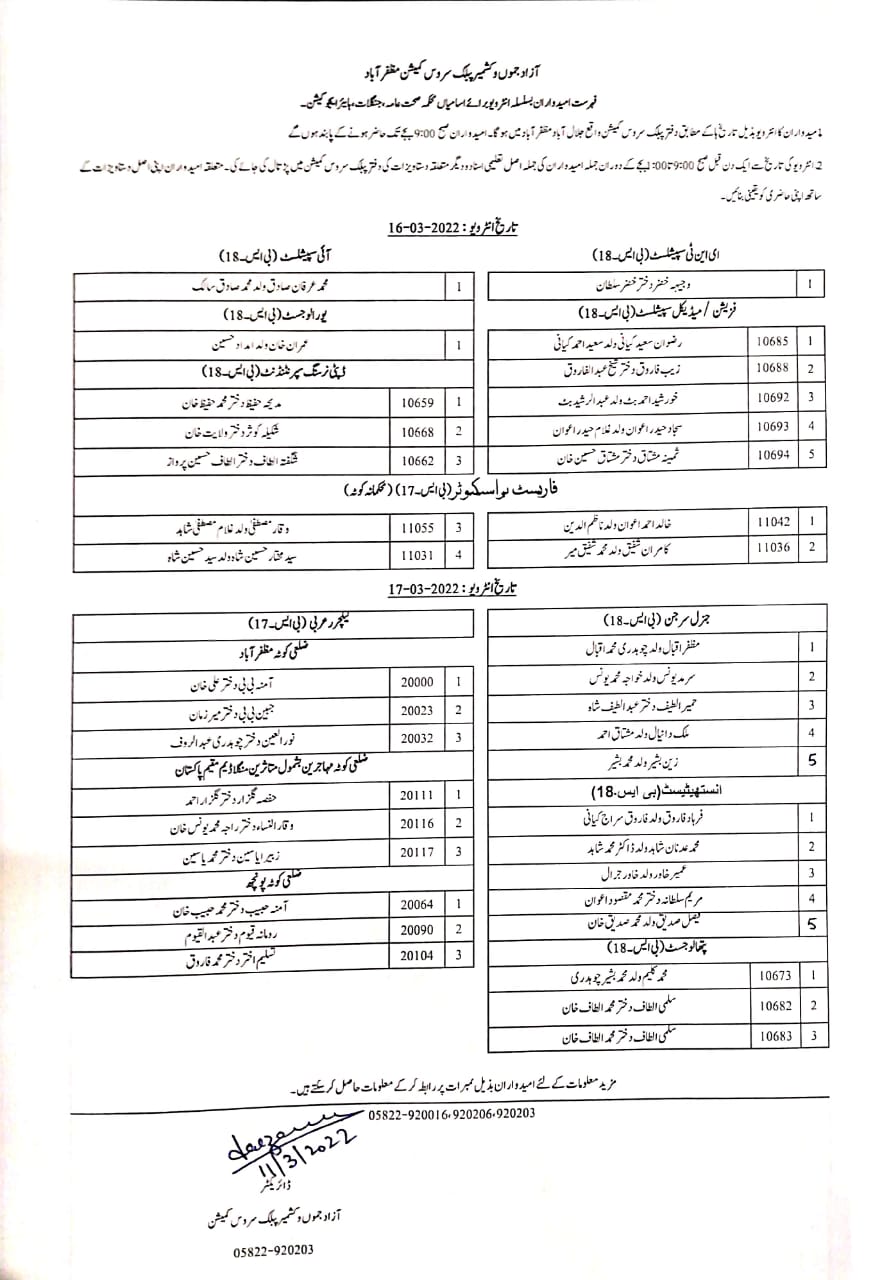 آزاد جموں و کشمیر پبلک سروس کمیشن مظفر آباد
فہرست امیدواران بسلسلہ انٹرویو برائے اسامیاں محکمہ صحت عامہ، جنگلات، ہائیر ایجوکیشن۔
1۔ امیدواران کا انٹرویو بذیل تاریخ ہا کے مطابق دفتر پبلک سروس کمیشن واقع جلال آباد مظفر آباد میں ہوگا۔ امیدواران صبح 9:00 بجے تک حاضر ہونے کے پابند ہوں گے
2۔ انٹرویو کی تاریخ سے ایک دن قبل صبح 9:00 تا 1:00 بجے کے دوران جملہ امیدواران کی جملہ اصل تعلیمی اسناد و دیگر متعلقہ دستاویزات کی دفتر پبلک سروس کمیشن میں پڑتال کی جائے گی۔ متعلقہ امیدواران اپنی اصل دستاویزات کے
ساتھ اپنی حاضری کو یقینی بنائیں۔
تاریخ انٹرویو: 16-03-2022
ای این ٹی سپیشلسٹ (بی ایس۔18)
1 وجیہہ خضر دختر خضر سلطان
فزیشن / میڈیکل سپیشلسٹ (بی ایس۔18)
1 10685 رضوان سعید کیانی ولد سعید احمد کیانی
2 10688 زیب فاروق دختر شیخ عبدالفاروق
3 10692 خورشید احمد بٹ ولد عبدالرشید بٹ
4 10693 سجاد حیدر اعوان ولد غلام حیدر اعوان
5 10694 ثمینہ مشتاق دختر مشتاق حسین خان
آئی سپیشلسٹ (بی ایس۔18)
1 محمد عرفان صادق ولد محمد صادق سالک
یورالوجسٹ (بی ایس۔18)
1 عمران خان ولد امداد حسین
ڈپٹی نرسنگ سپرنٹنڈنٹ (بی ایس۔18)
1 10659 مدیحہ حفیظ دختر محمد حفیظ خان
2 10668 شکیلہ کوثر دختر ولایت خان
3 10662 شگفتہ الطاف دختر الطاف حسین پرواز
فاریسٹ پراسکیوٹر (بی ایس۔17) (محکمانہ کوٹہ)
1 11042 خالد احمد اعوان ولد ناظم الدین
2 11036 کامران شفیق ولد محمد شفیق میر
3 11055 وقار مصطفیٰ ولد غلام مصطفیٰ شاہد
4 11031 سید مختار حسین شاہ ولد سید حسین شاہ
تاریخ انٹرویو: 17-03-2022
جنرل سرجن (بی ایس۔18)
1 مظفر اقبال ولد چوہدری محمد اقبال
2 سرمد یونس ولد خواجہ محمد یونس
3 حمیرا لطیف دختر عبدالطیف شاہ
4 ملک دانیال ولد مشتاق احمد
5 زین بشیر ولد محمد بشیر
انستھیٹیسٹ (بی ایس۔18)
1 فرہاد فاروق ولد فاروق سراج کیانی
2 محمد عدنان شاہد ولد ڈاکٹر محمد شاہد
3 عمیر خاور ولد خاور جرال
4 مریم سلطانہ دختر محمد مقصود اعوان
5 فیصل صدیق ولد محمد صدیق خان
پتھالوجسٹ (بی ایس۔18)
1 10673 محمد کلیم ولد محمد بشیر چوہدری
2 10682 سلمی الطاف دختر محمد الطاف خان
3 10683 سلمی الطاف دختر محمد الطاف خان
لیکچرر عربی (بی ایس۔17)
ضلعی کوٹہ مظفر آباد
1 20000 آمنہ بی بی دختر علی خان
2 20023 جبین بی بی دختر میر زمان
3 20032 نورالعین دختر چوہدری عبدالروف
ضلعی کوٹہ مہاجرین بشمول متاثرین منگلا ڈیم مقیم پاکستان
1 20111 حفصہ گلزار دختر گلزار احمد
2 20116 وقار النساء دختر راجہ محمد یونس خان
3 20117 زبیرا یاسین دختر محمد یاسین
ضلعی کوٹہ پونچھ
1 20064 آمنہ حبیب دختر محمد حبیب خان
2 20090 رومانہ قیوم دختر عبدالقیوم
3 20104 تسلیم اختر دختر محمد فاروق
مزید معلومات کے لئے امیدواران بذیل نمبرات پر رابطہ کر کے معلومات حاصل کر سکتے ہیں۔
05822-920016،920206،920203
11/3/2022
ڈائریکٹر
آزاد جموں و کشمیر پبلک سروس کمیشن
05822-920203